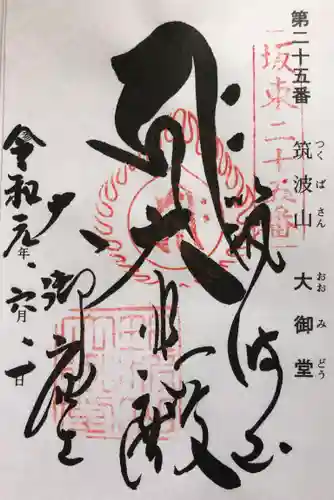 第二十五番 筑波山 大御堂
つくばさん おおみどう
坂東二十五番
筑波山
大悲殿
御座主
令和元年六月一日